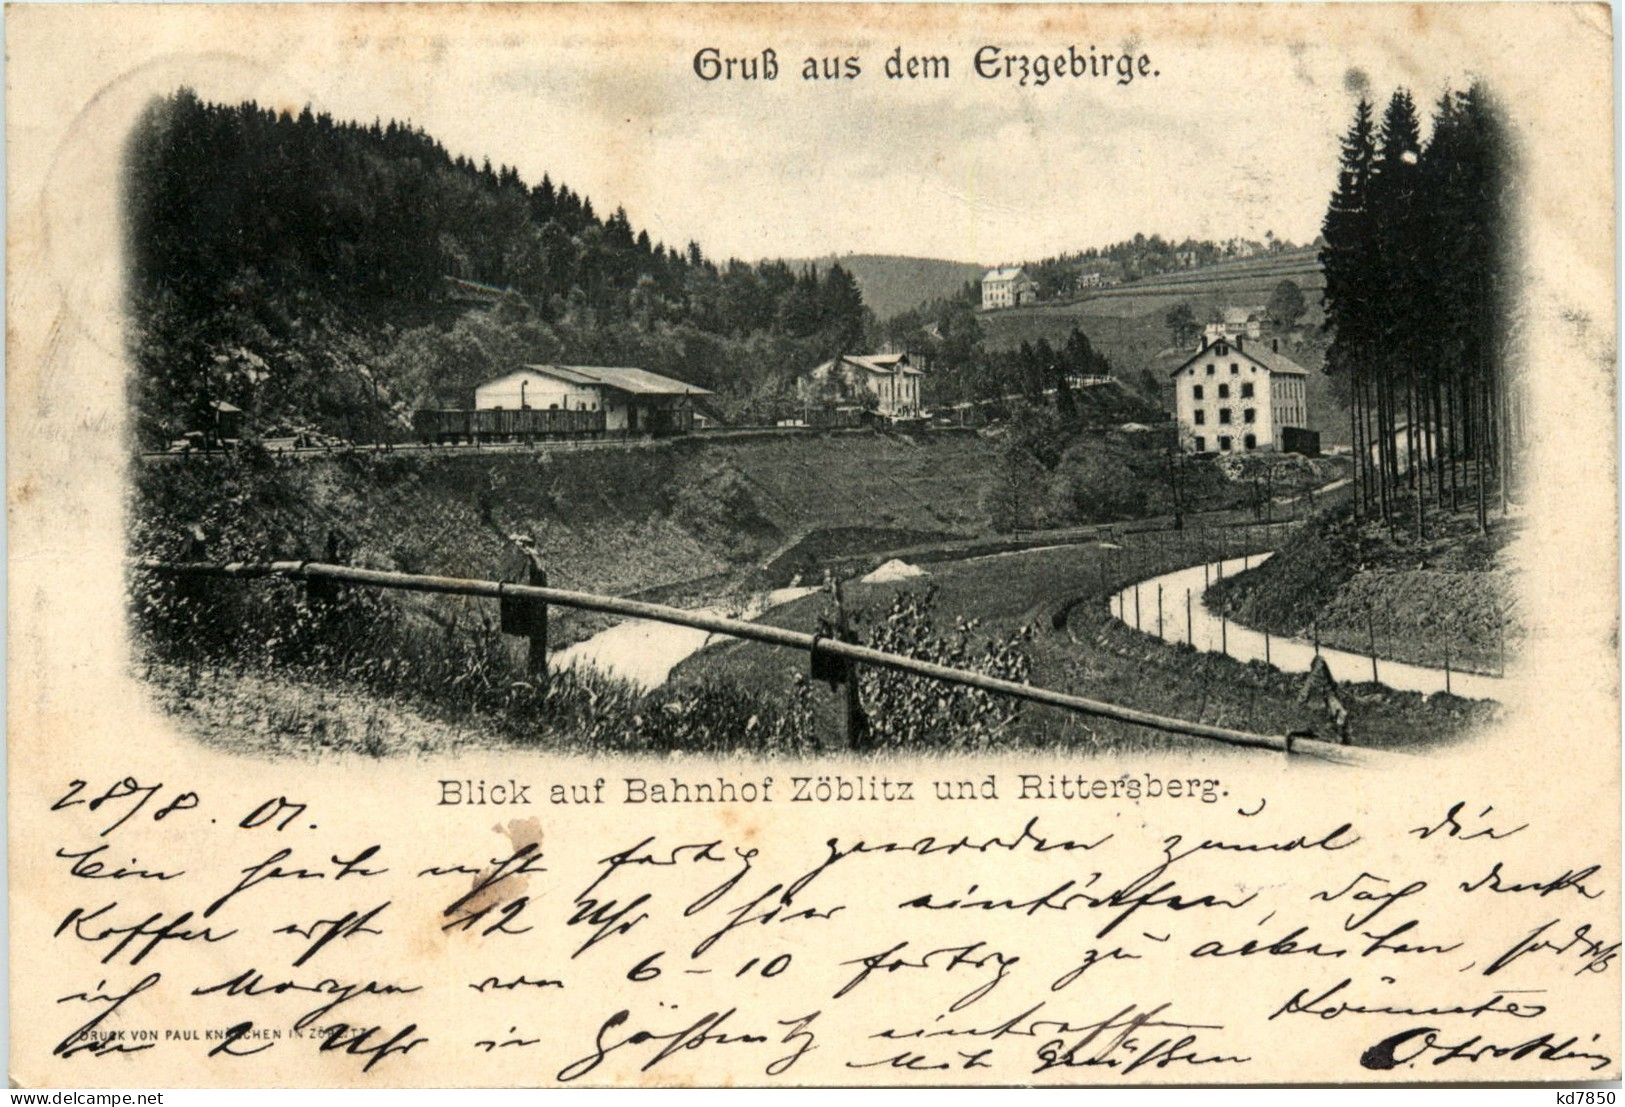 Gruß aus dem Erzgebirge.
Blick auf Bahnhof Zöblitz und Rittersberg.
28/8. 01.
Bin heute nicht fertig geworden zumal die
Koffer erst 12 Uhr hier eintrafen, doch denke
ich Morgen von 6-10 fertig zu arbeiten, sodaß
2 Uhr in eintreffen könnte
DRUCK VON PAUL IN ZÖBLITZ.
Mit Grüßen
kd7850